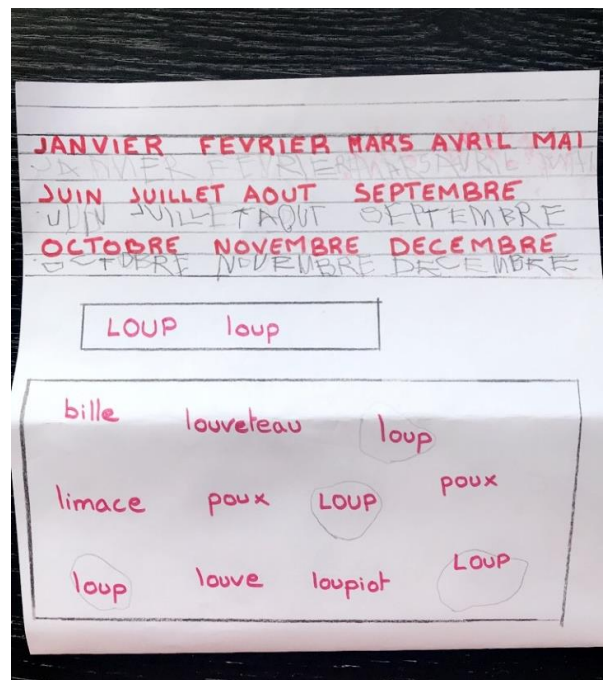 JANVIER FEVRIER MARS AVRIL MAI
JANVIER FEVRIER MARS AVRIL MAI
JUIN JUILLET AOUT SEPTEMBRE
JUIN JUILLET AOUT SEPTEMBRE
OCTOBRE NOVEMBRE DECEMBRE
OCTOBRE NOVEMBRE DECEMBRE
LOUP loup
bille louveteau loup
limace poux LOUP poux
loup louve loupiot LOUP